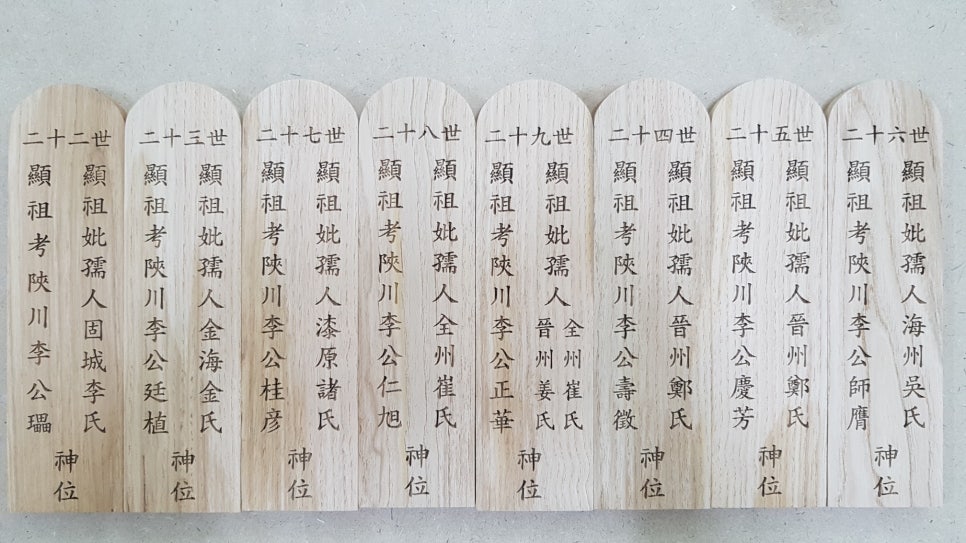 二十二世
顯祖考陜川李公
顯祖妣孺人固城李氏
神位
二十三世
顯祖考陜川李公廷植
顯祖妣孺人金海金氏
神位
二十七世
顯祖考陜川李公桂彦
顯祖妣孺人漆原諸氏
神位
二十八世
顯祖考陜川李公仁旭
顯祖妣孺人全州崔氏
神位
二十九世
顯祖考陜川李公正華
顯祖妣孺人
晉州姜氏
全州崔氏
神位
二十四世
顯祖考陜川李公壽徵
顯祖妣孺人晉州鄭氏
神位
二十五世
顯祖考陜川李公慶芳
顯祖妣孺人晉州鄭氏
神位
二十六世
顯祖考陜川李公師膺
顯祖妣孺人海州吳氏
神位